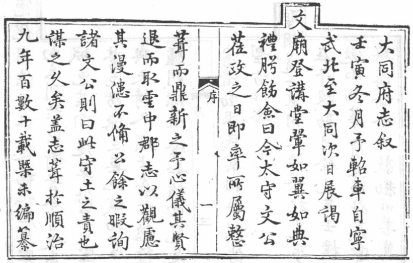 大同府志叙
壬寅冬月予軺車自寧
武北至大同次日展謁
文廟登講堂翬如翼如典
禮腭餙僉曰今太守文公
莅政之日即率所屬整
序
一
葺而鼎新之予心儀其賢
退而取雲中郡志以觀慮
其漫漶不脩公餘之暇詢
諸文公則曰此守土之責也
謀之久矣蓋志葺於順治
九年百數十載槩未編纂